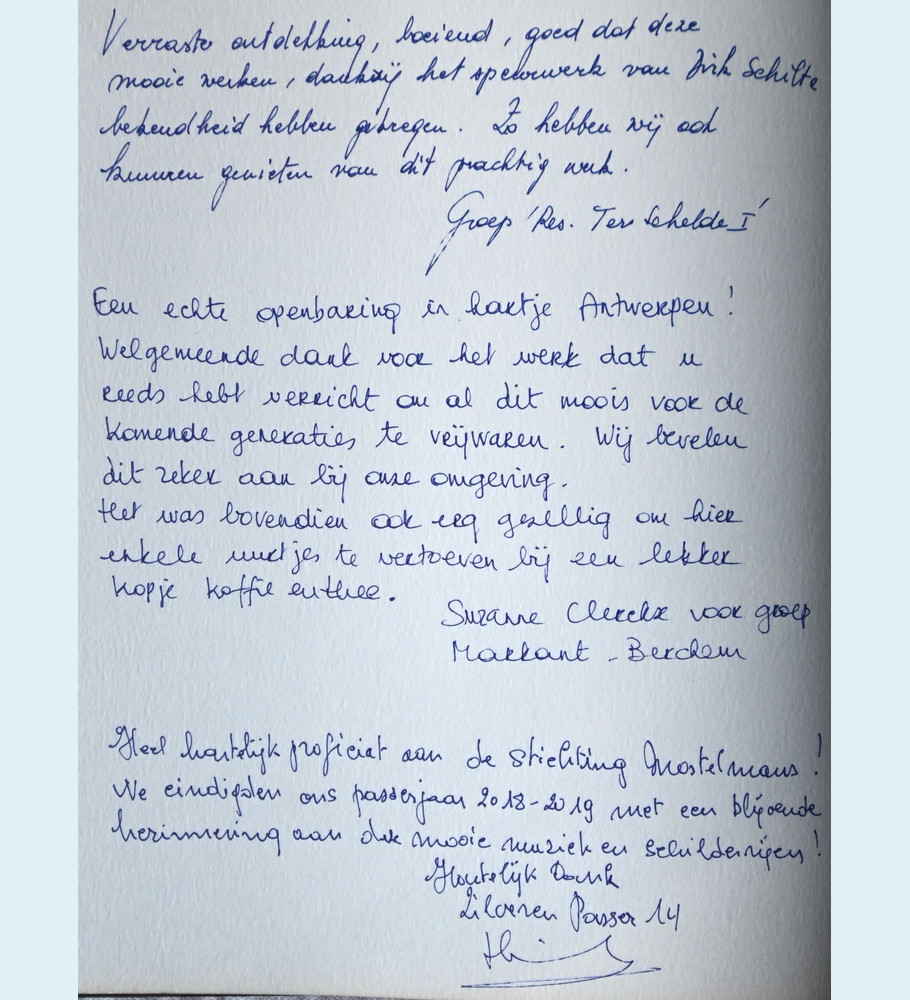 Verraste ontdekking, boeiend, goed dat deze
mooie werken, dankzij het speurwerk van Dirk Schilte
bekendheid hebben gekregen. Zo hebben wij ook
kunnen genieten van dit prachtig werk.
Groep 'Res. Ter Schelde I'
Een echte openbaring in hartje Antwerpen!
Welgemeende dank voor het werk dat u
reeds hebt verricht om al dit moois voor de
komende generaties te vrijwaren. Wij bevelen
dit zeker aan bij onze omgeving.
Het was bovendien ook erg gezellig om hier
enkele uurtjes te vertoeven bij een lekker
kopje koffie en thee.
Suzanne Clerckx voor groep
Markant - Berchem
Heel hartelijk proficiat aan de Stichting Mostelmans!
We eindigden ons passerjaar 2018-2019 met een blijvende
herinnering aan deze mooie muziek en schilderijen!
Hartelijk Dank
Zilveren Passer 14